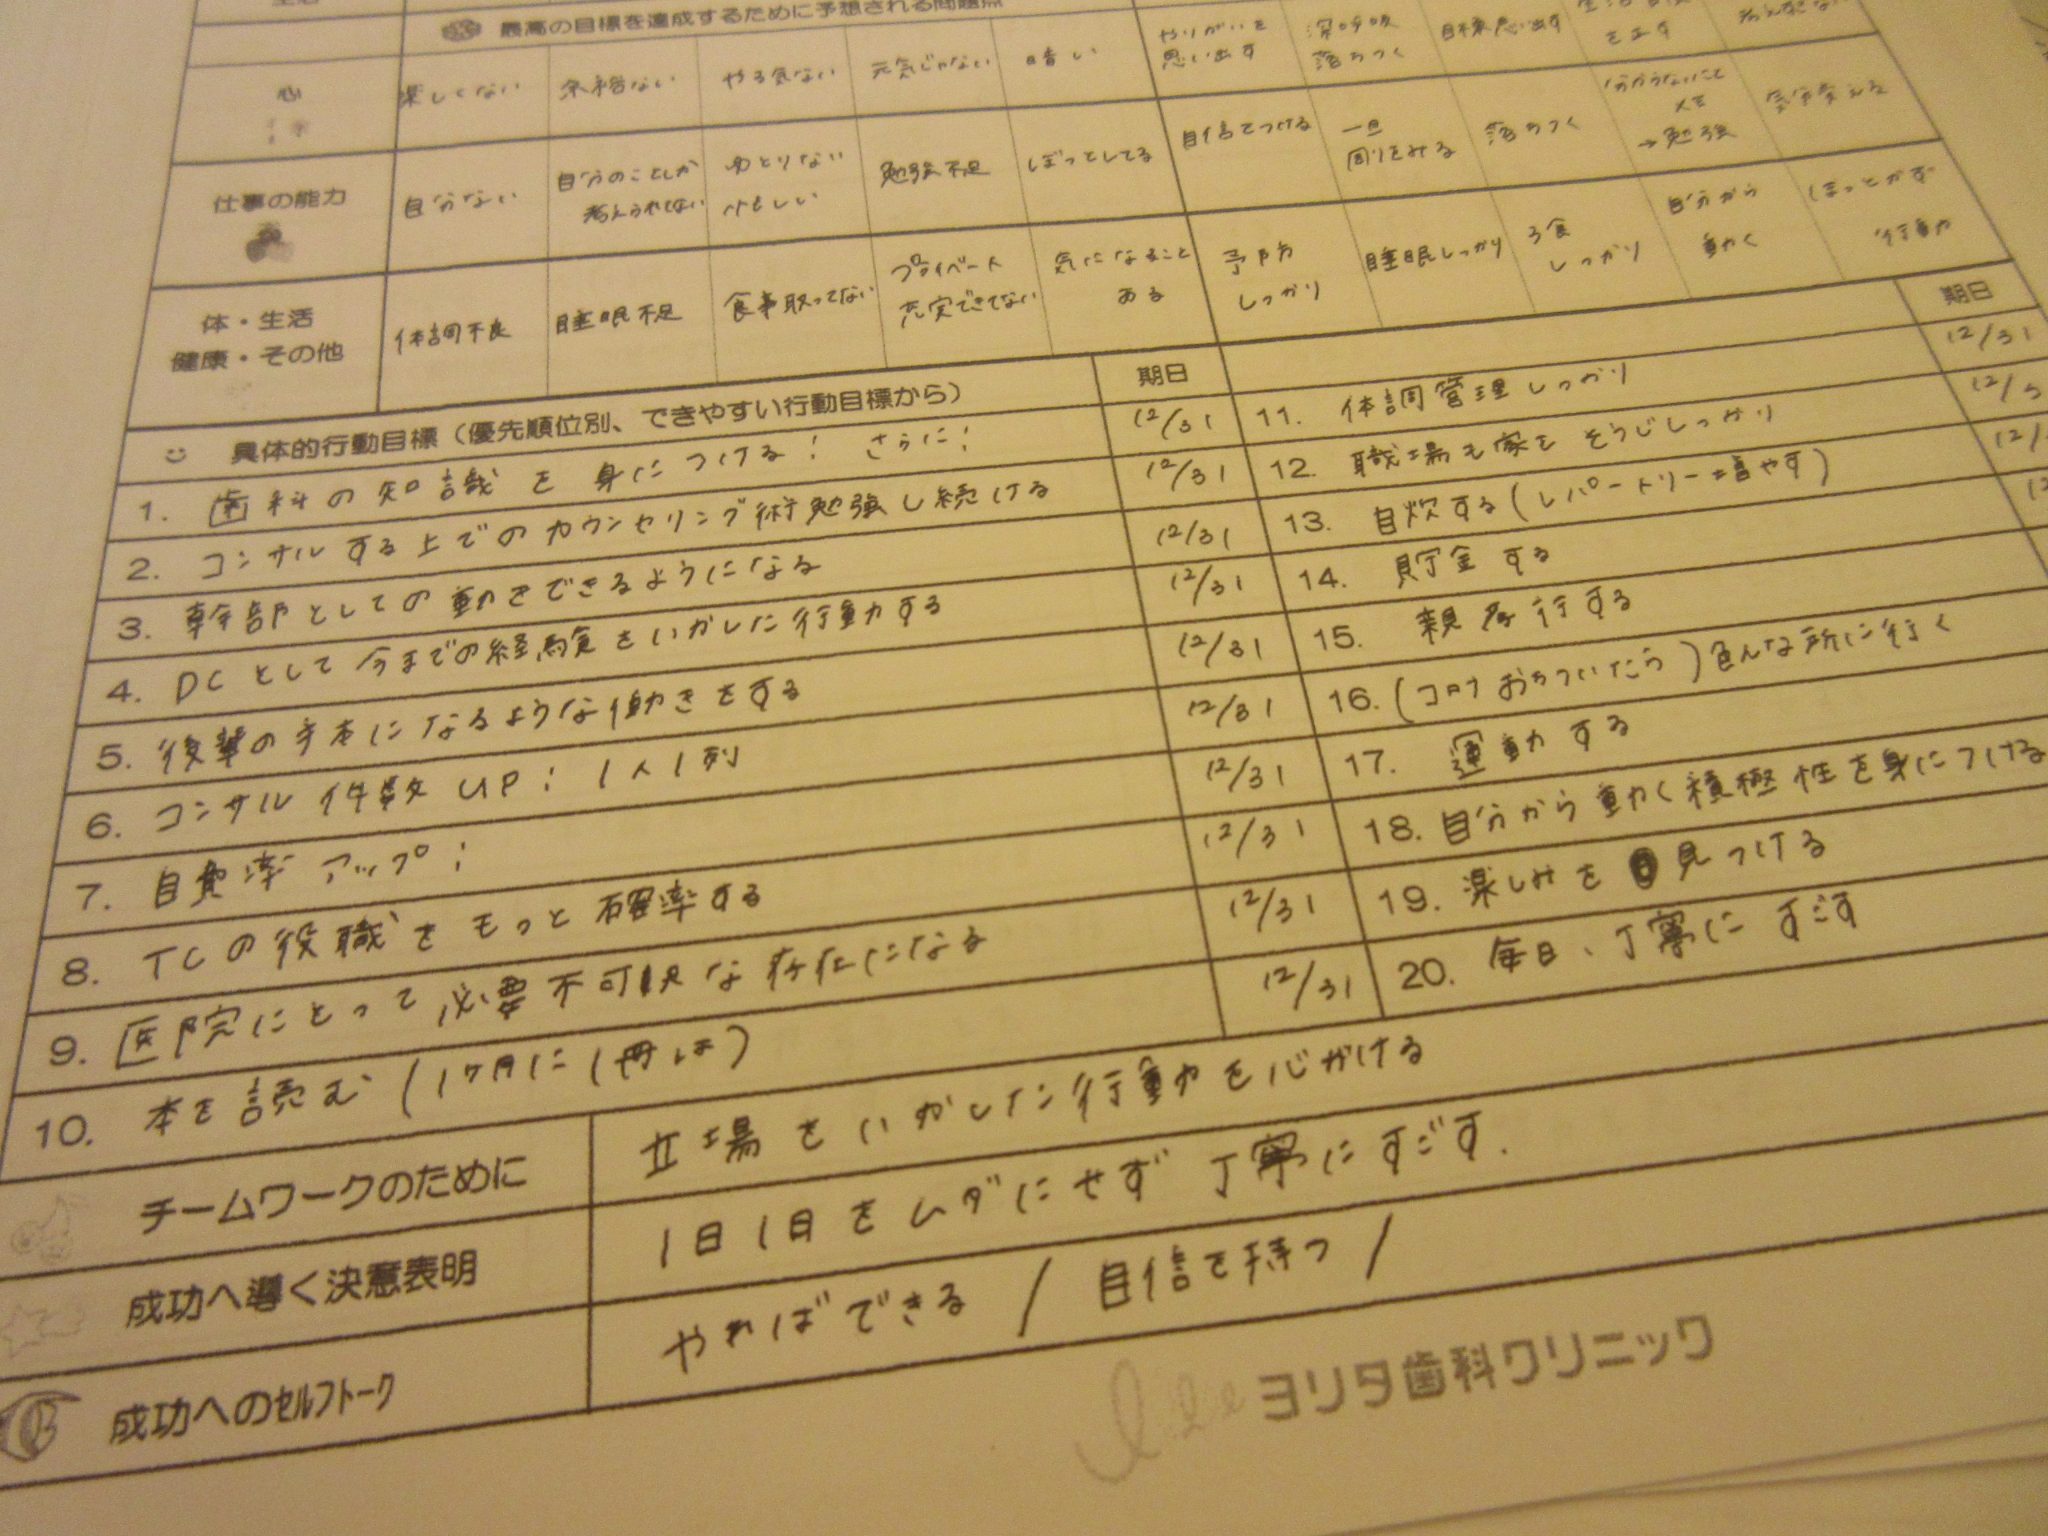 最高の目標を達成するために予想される問題点
やりがいを
思い出す
深呼吸
落ちつく
目標思い出す
を正す
心
楽しくない
余裕ない
やる気ない
元気じゃない
暗い
自信をつける
一旦
周りをみる
落ちつく
分からないこと
→勉強
気分変える
仕事の能力
自分ない
自分のことしか
考えられてない
ゆとりない
忙しい
勉強不足
ぼっとしてる
予防
しっかり
睡眠しっかり
3食
しっかり
自分から
動く
ぼっとせず
行動
体・生活
健康・その他
体調不良
睡眠不足
食事取ってない
プライベート
充実できてない
気になること
ある
具体的行動目標（優先順位別、できやすい行動目標から） 期日
期日
1. 歯科の知識を身につける! さらに! 12/31
2. コンサルする上でのカウンセリング術勉強し続ける 12/31
3. 幹部としての動きをできるようになる 12/31
4. DCとして今までの経験をいかした行動する 12/31
5. 後輩の手本になるような働きをする 12/31
6. コンサル件数UP! 1人1列 12/31
7. 自費率アップ! 12/31
8. TCの役職をもっと確率する 12/31
9. 医院にとって必要不可欠な存在になる 12/31
10. 本を読む(1ヶ月に1冊は) 12/31
11. 体調管理しっかり 12/31
12. 職場も家もそうじしっかり
13. 自炊する(レパートリー増やす)
14. 貯金する
15. 親孝行する
16. (コロナおちついたら)色んな所に行く
17. 運動する
18. 自分から動く積極性を身につける
19. 楽しみを見つける
20. 毎日、丁寧にすごす
チームワークのために 立場をいかした行動を心がける
成功へ導く決意表明 1日1日をムダにせず丁寧にすごす.
成功へのｾﾙﾌﾄｰｸ やればできる! 自信を持つ!
ヨリタ歯科クリニック